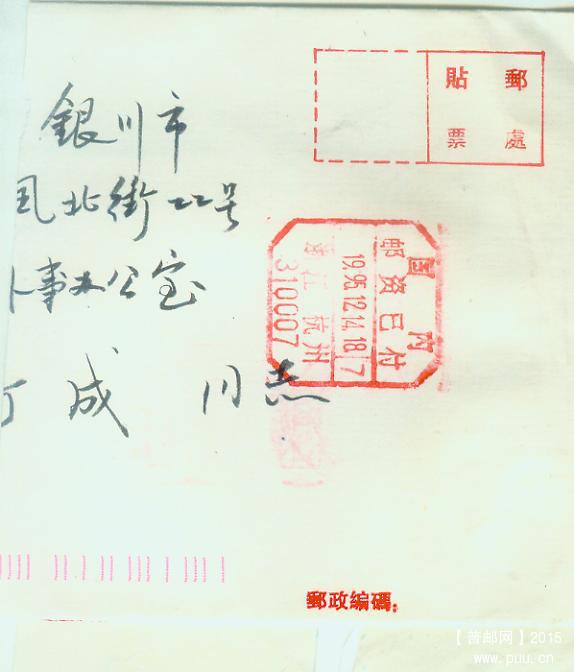 郵票
貼處
銀川市
北街22号
事办公室
成 同志
國内
邮资已付
19.95.12.14.18 7
浙江 杭州
310007
郵政编碼:
【普邮网】2015
www.puu.cn